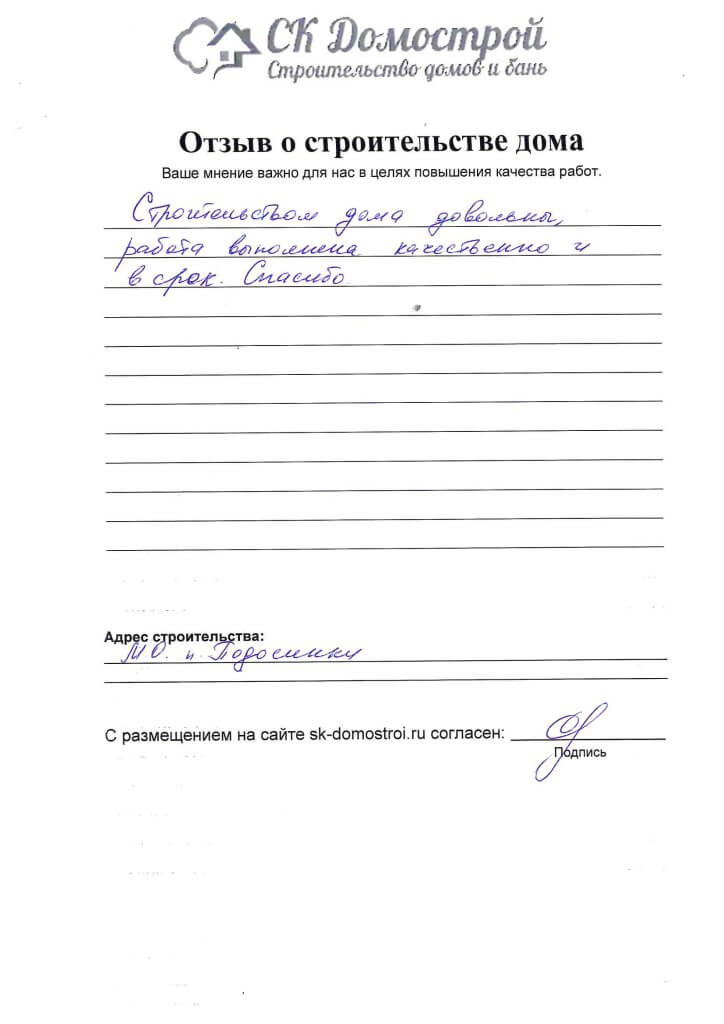 СК Домострой
Строительство домов и бань
Отзыв о строительстве дома
Ваше мнение важно для нас в целях повышения качества работ.
Строительством дома довольны,
работа выполнена качественно и
в срок. Спасибо
Адрес строительства:
М.О. п. Подосинки
С размещением на сайте sk-domostroi.ru согласен:
Подпись